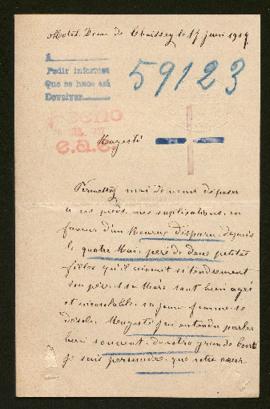 de Choissey le 17 juin 1917
Pedir informes
Que se hace acá
Devolver
59123
e.a.c.
Majesté
Permettez moi de venir déposer
à vos pieds, mes supplications, en
faveur d'un Neveu Disparu, depuis
le quatre Mai, père de deux petites
filles qu'il aimait si tendrement
son père, sa Mère sont bien agés
et inconsolables, sa jeune femme se
désole. Majesté j'ai entendu parler
bien souvent de votre grande bonté
je suis persuadée, que votre cœur